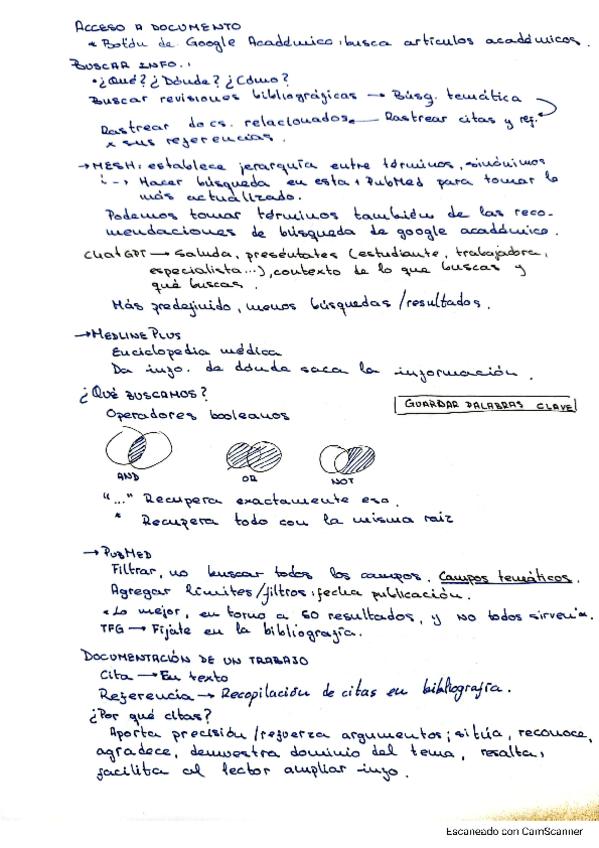 ACCESO A DOCUMENTO
* Botón de Google Académico: busca artículos académicos.
BUSCAR INFO.:
• ¿Qué? ¿Dónde? ¿Cómo?
Buscar revisiones bibliográficas → Búsq. temática
Rastrear docs. relacionados ← Rastrear citas y ref.
x sus referencias.
→ MESH: establece jerarquía entre términos, sinónimos
Hacer búsqueda en esta + PubMed para tomar lo
más actualizado.
Podemos tomar términos también de las reco-
mendaciones de búsqueda de google académico.
ChatGPT → Saluda, preséntates (estudiante, trabajadora,
especialista...), contexto de lo que buscas y
qué buscas.
Más predefinido, menos búsquedas/resultados.
→ MEDLINE PLUS
Enciclopedia médica
Da info. de dónde saca la información.
¿QUÉ BUSCAMOS?
GUARDAR PALABRAS CLAVE
Operadores booleanos
AND
OR
NOT
"..." Recupera exactamente eso.
* Recupera todo con la misma raíz
→ PUBMED
Filtrar, no buscar todos los campos. Campos temáticos.
Agregar límites/filtros: fecha publicación.
"Lo mejor, en torno a 50 resultados, y NO todos sirven".
TFG → Fíjate en la bibliografía.
DOCUMENTACIÓN DE UN TRABAJO
Cita → En texto
Referencia → Recopilación de citas en bibliografía.
¿Por qué citas?
Aporta precisión/refuerza argumentos; sitúa, reconoce,
agradece, demuestra dominio del tema, resalta,
facilita al lector ampliar info.
Escaneado con CamScanner